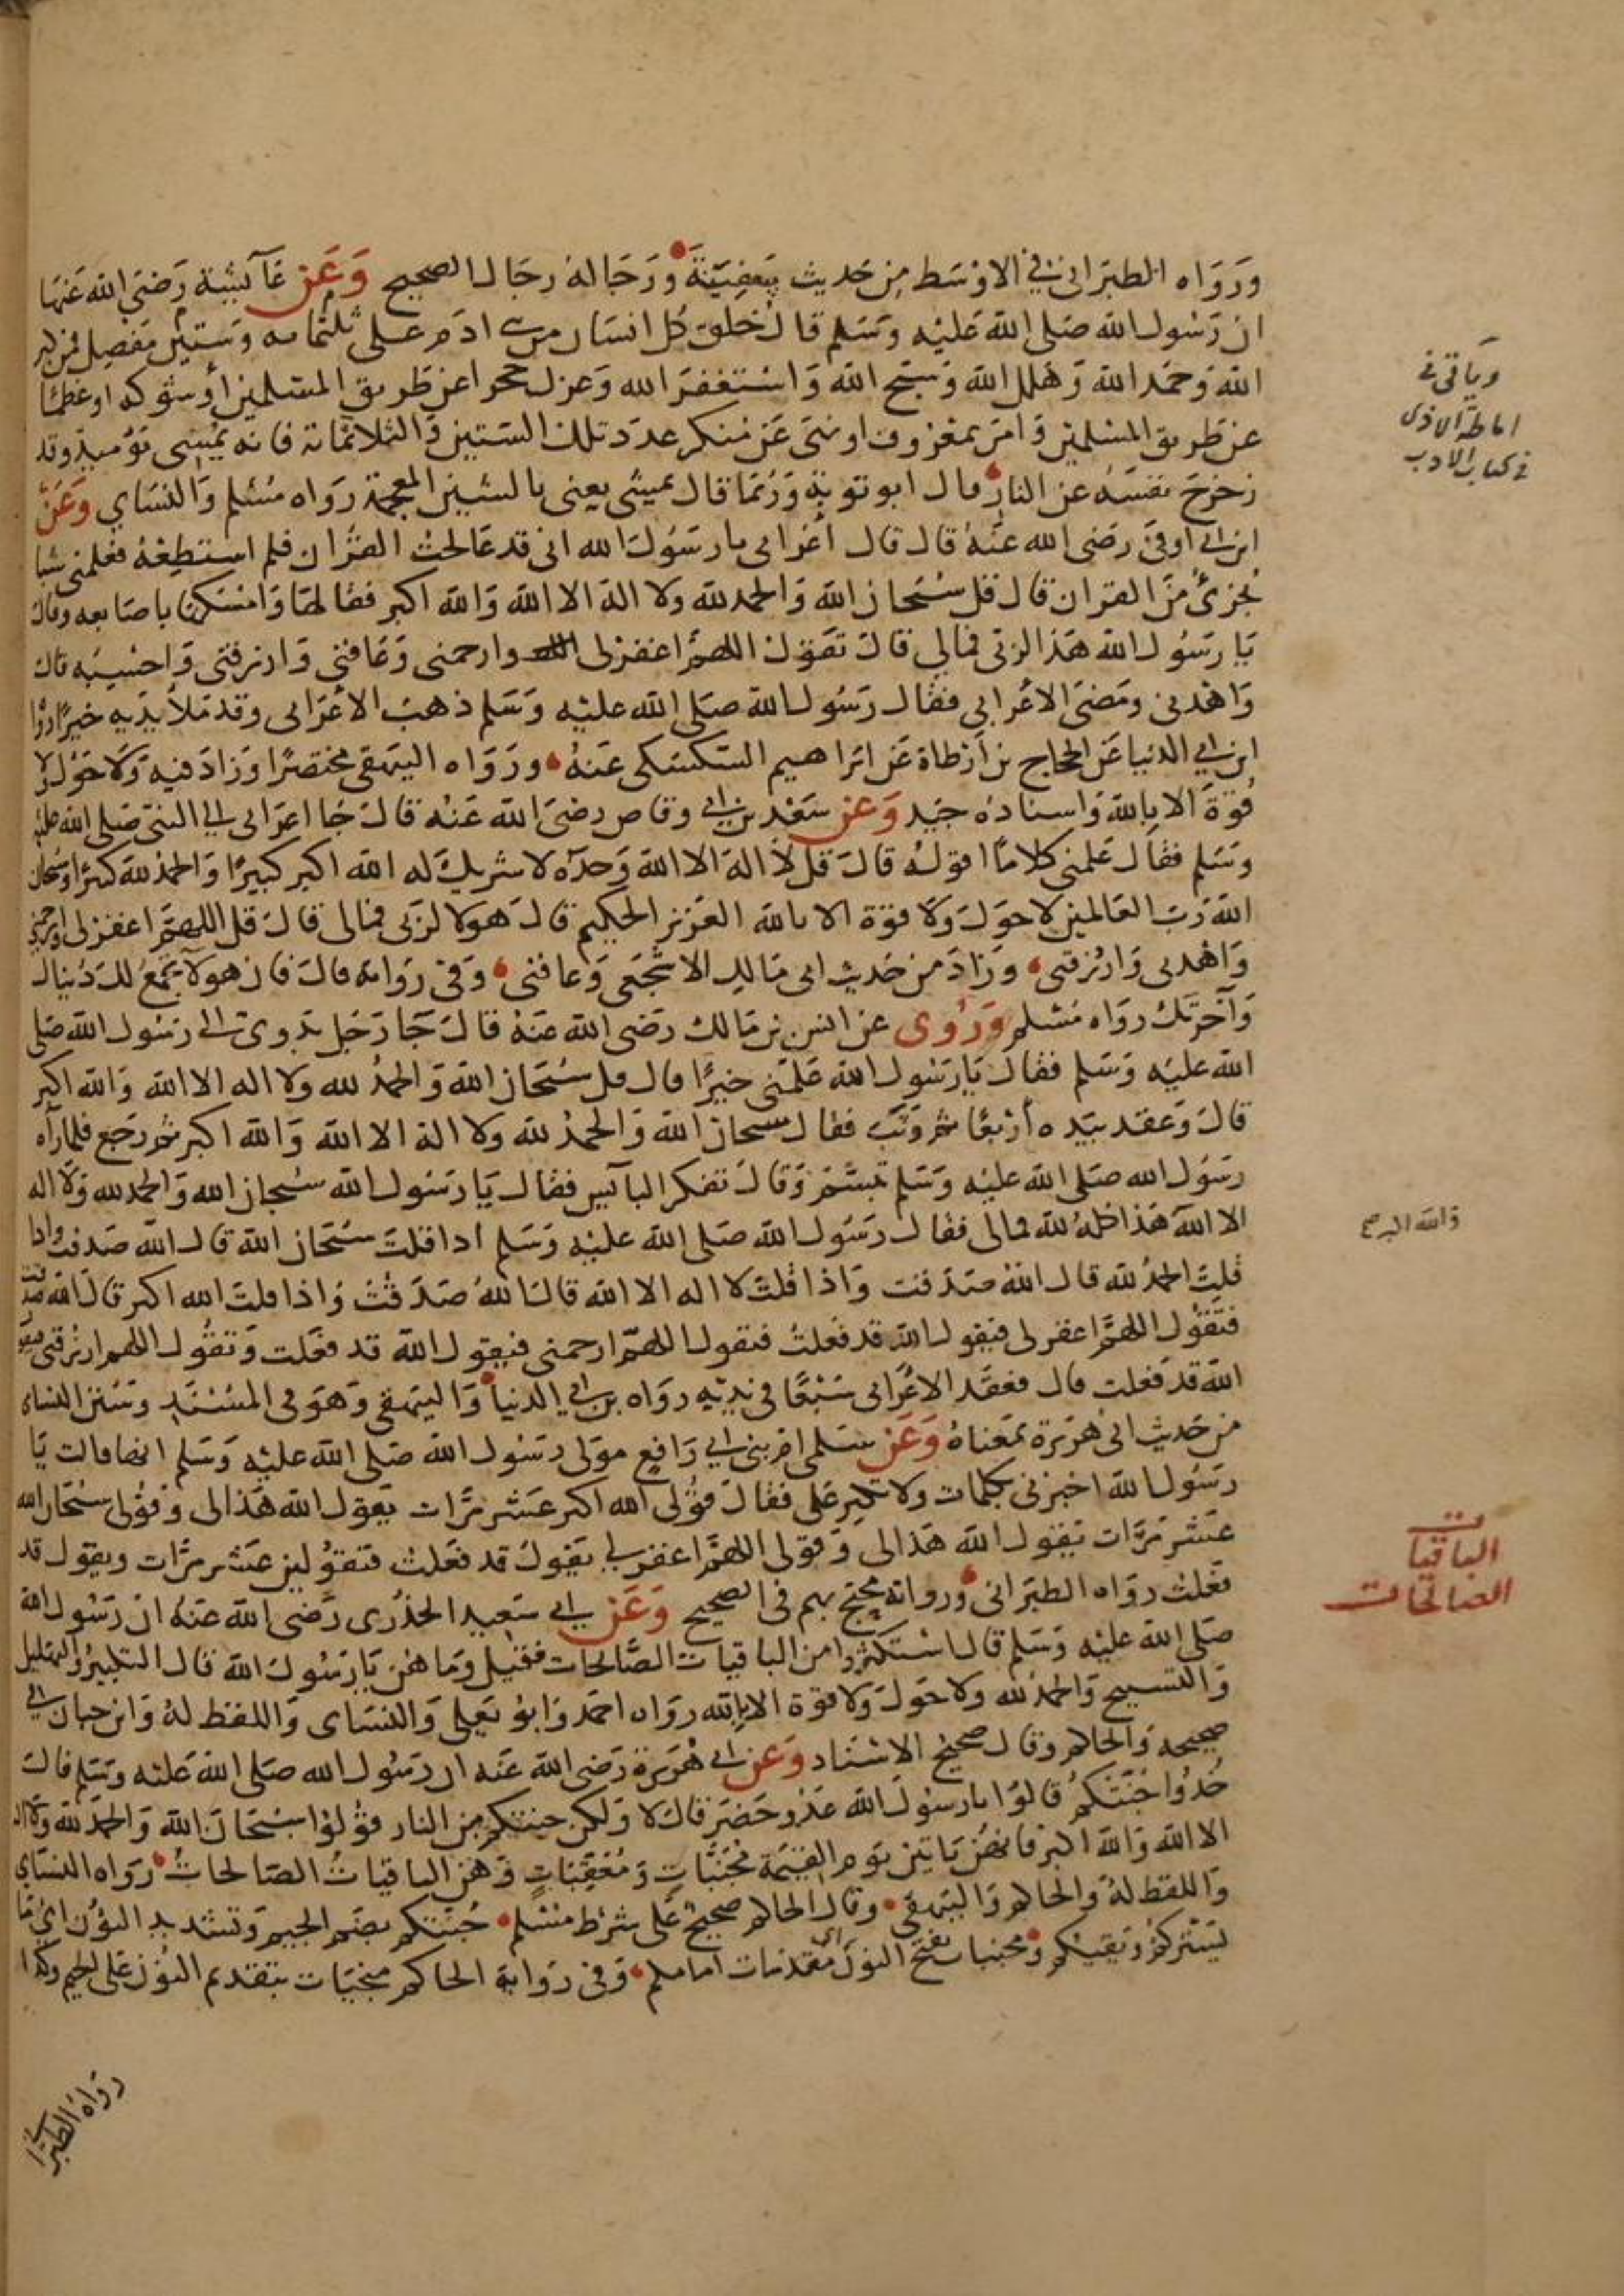 ورواه الطبراني في الاوسط من حديث ورجاله رجال الصحيح وعن عائشة رضي الله عنها
ان رسول الله صلى الله عليه وسلم قال خلق كل انسان من بني ادم على ثلثمائه وستين مفصل فمن كبر
الله وحمد الله وهلل الله وسبح الله واستغفر الله وعزل حجرا عن طريق المسلمين أو شوكه او عظما
عن طريق المسلمين وامر بمعروف او نهى عن منكر عدد تلك الستين والثلاثمائة فانه يمسي يومئذ وقد
زحزح نفسه عن النار قال ابو توبة وربما قال يمشي يعني بالشين المعجمة رواه مسلم والنساي وعن
ابن ابي اوفى رضي الله عنه قال قال اعرابي يا رسول الله اني قد عالجت القران فلم استطعه فعلمني شيا
يجزئ من القران قال قل سبحان الله والحمد لله ولا اله الا الله والله اكبر فقالها وامسكها باصابعه وقال
يا رسول الله هذا لربي فما لي قال تقول اللهم اغفر لي وارحمني وعافني وارزقني واحسبه قال
واهدني ومضى الاعرابي فقال رسول الله صلى الله عليه وسلم ذهب الاعرابي وقد ملأ يديه خيرا رواه
ابن ابي الدنيا عن الحجاج بن ارطاة عن ابراهيم السكسكي عنه ورواه البيهقي مختصرا وزاد فيه ولا حول ولا
قوة الا بالله واسناده جيد وعن سعد بن ابي وقاص رضي الله عنه قال جا اعرابي الى النبي صلى الله عليه
وسلم فقال علمني كلاما اقوله قال قل لا اله الا الله وحده لا شريك له الله اكبر كبيرا والحمد لله كثيرا وسبحان
الله رب العالمين لا حول ولا قوة الا بالله العزيز الحكيم قال هولا لربي فما لي قال قل اللهم اغفر لي وارحمني
واهدني وارزقني وزاد من حديث ابي مالك الاشجعي وعافني وفي رواية قال فان هولا تجمع لك دنياك
وآخرتك رواه مسلم وروي عن انس بن مالك رضي الله عنه قال جا رجل بدوي الى رسول الله صلى
الله عليه وسلم فقال يا رسول الله علمني خيرا قال قل سبحان الله والحمد لله ولا اله الا الله والله اكبر
قال وعقد بيده أربعا ثم وثب فقال سبحان الله والحمد لله ولا اله الا الله والله اكبر ثم رجع فلما رآه
رسول الله صلى الله عليه وسلم تبسم وقال تفكر البآيس فقال يا رسول الله سبحان الله والحمد لله ولا اله
الا الله هذا كله لله فما لي فقال رسول الله صلى الله عليه وسلم اذا قلت سبحان الله قال الله صدقت واذا
قلت الحمد لله قال الله صدقت واذا قلت لا اله الا الله قال الله صدقت واذا قلت الله اكبر قال الله صدقت
فتقول اللهم اغفر لي فيقول الله قد فعلت فتقول اللهم ارحمني فيقول الله قد فعلت وتقول اللهم ارزقني فيقول
الله قد فعلت قال فعقد الاعرابي سبعا في يديه رواه بن ابي الدنيا والبيهقي وهو في المسند وسنن النساي
من حديث ابي هريرة بمعناه وعن سلمى ام بني ابي رافع مولى رسول الله صلى الله عليه وسلم انها قالت يا
رسول الله اخبرني بكلمات ولا تكثر علي فقال قولي الله اكبر عشر مرات يقول الله هذا لي وقولي سبحان الله
عشر مرات يقول الله هذا لي وقولي اللهم اغفر لي يقول قد فعلت فتقولين عشر مرات ويقول قد
فعلت رواه الطبراني ورواته محتج بهم في الصحيح وعن ابي سعيد الخدري رضي الله عنه ان رسول الله
صلى الله عليه وسلم قال استكثروا من الباقيات الصالحات فقيل وما هن يا رسول الله قال التكبير والتهليل
والتسبيح والحمد لله ولا حول ولا قوة الا بالله رواه احمد وابو يعلى والنساي واللفظ له وابن حبان في
صحيحه والحاكم وقال صحيح الاسناد وعن ابي هريرة رضي الله عنه ان رسول الله صلى الله عليه وسلم قال
خذوا جنتكم قالوا يا رسول الله عدو حضر قال لا ولكن جنتكم من النار قولوا سبحان الله والحمد لله ولا اله
الا الله والله اكبر فانهن ياتين يوم القيمة مجنبات ومعقبات وهن الباقيات الصالحات رواه النساي
واللفظ له والحاكم والبيهقي وقال الحاكم صحيح على شرط مسلم جنتكم بضم الجيم وتشديد النون اي ما
يستركم ويقيكم ومجنبات بفتح النون اي مقدمات امامكم وفي رواية الحاكم منجيات بتقديم النون على الجيم وكذا
رواه الطبراني
وياتي في
اماطة الاذى
في كتاب الادب
الباقيات
الصالحات